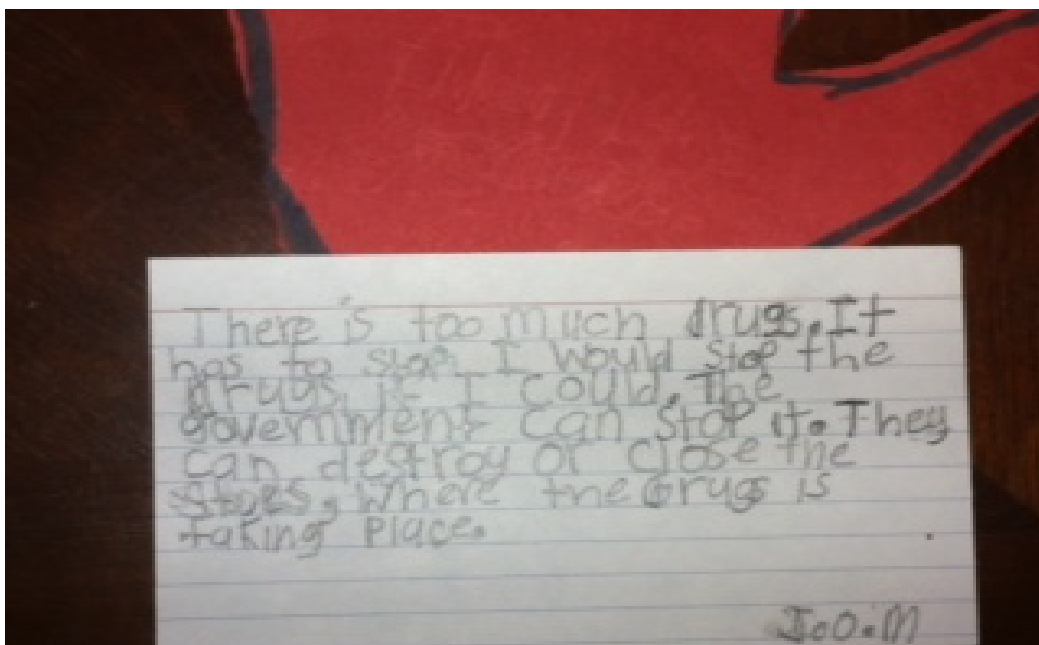 There is too much drugs. It
has to stop. I would stop the
drugs, if I could. The
government can stop it. They
can destroy or close the
stores, where the drugs is
taking place.
J.O.M